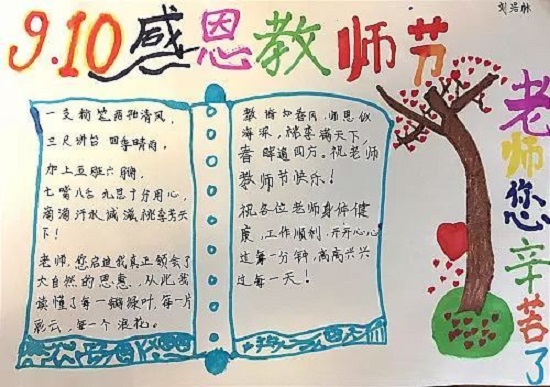 9.10感恩教师节
刘浩林
一支粉笔两袖清风,
三尺讲台 四季晴雨,
加上五班六腑,
七嘴八舌 九思十分用心,
滴滴汗水 诚滋桃李芳天
下!
老师,您启迪我真正领会了
大自然的恩惠,从此我
读懂了每一瓣绿叶,每一片
彩云,每一个浪花。
教诲如春风,师恩似
海深,桃李满天下
春晖遍四方。祝老师
教师节快乐!
祝各位老师身体健
康,工作顺利,开开心心
过每一分钟,高高兴兴
过每一天!
老师您辛苦了